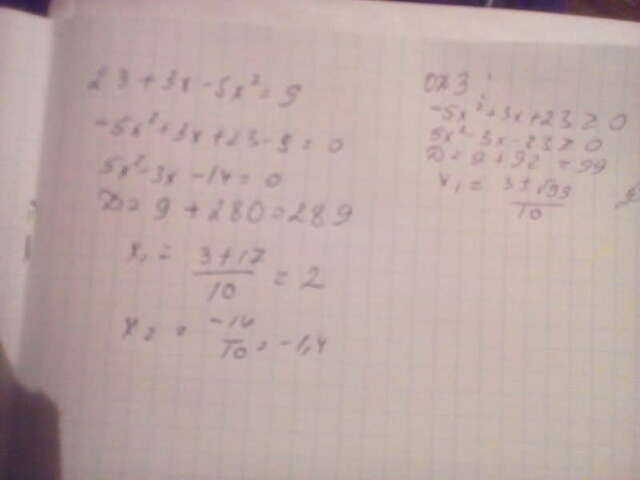 23+3x-5x²=9
-5x²+3x+23-9=0
5x²-3x-14=0
D=9+280=289
x₁= 3+17/10 = 2
x₂= -14/10 = -1,4
ОДЗ:
-5x²+3x+23≥0
5x²-3x-23≥0
D=9+92=99
x₁= 3±√99/10